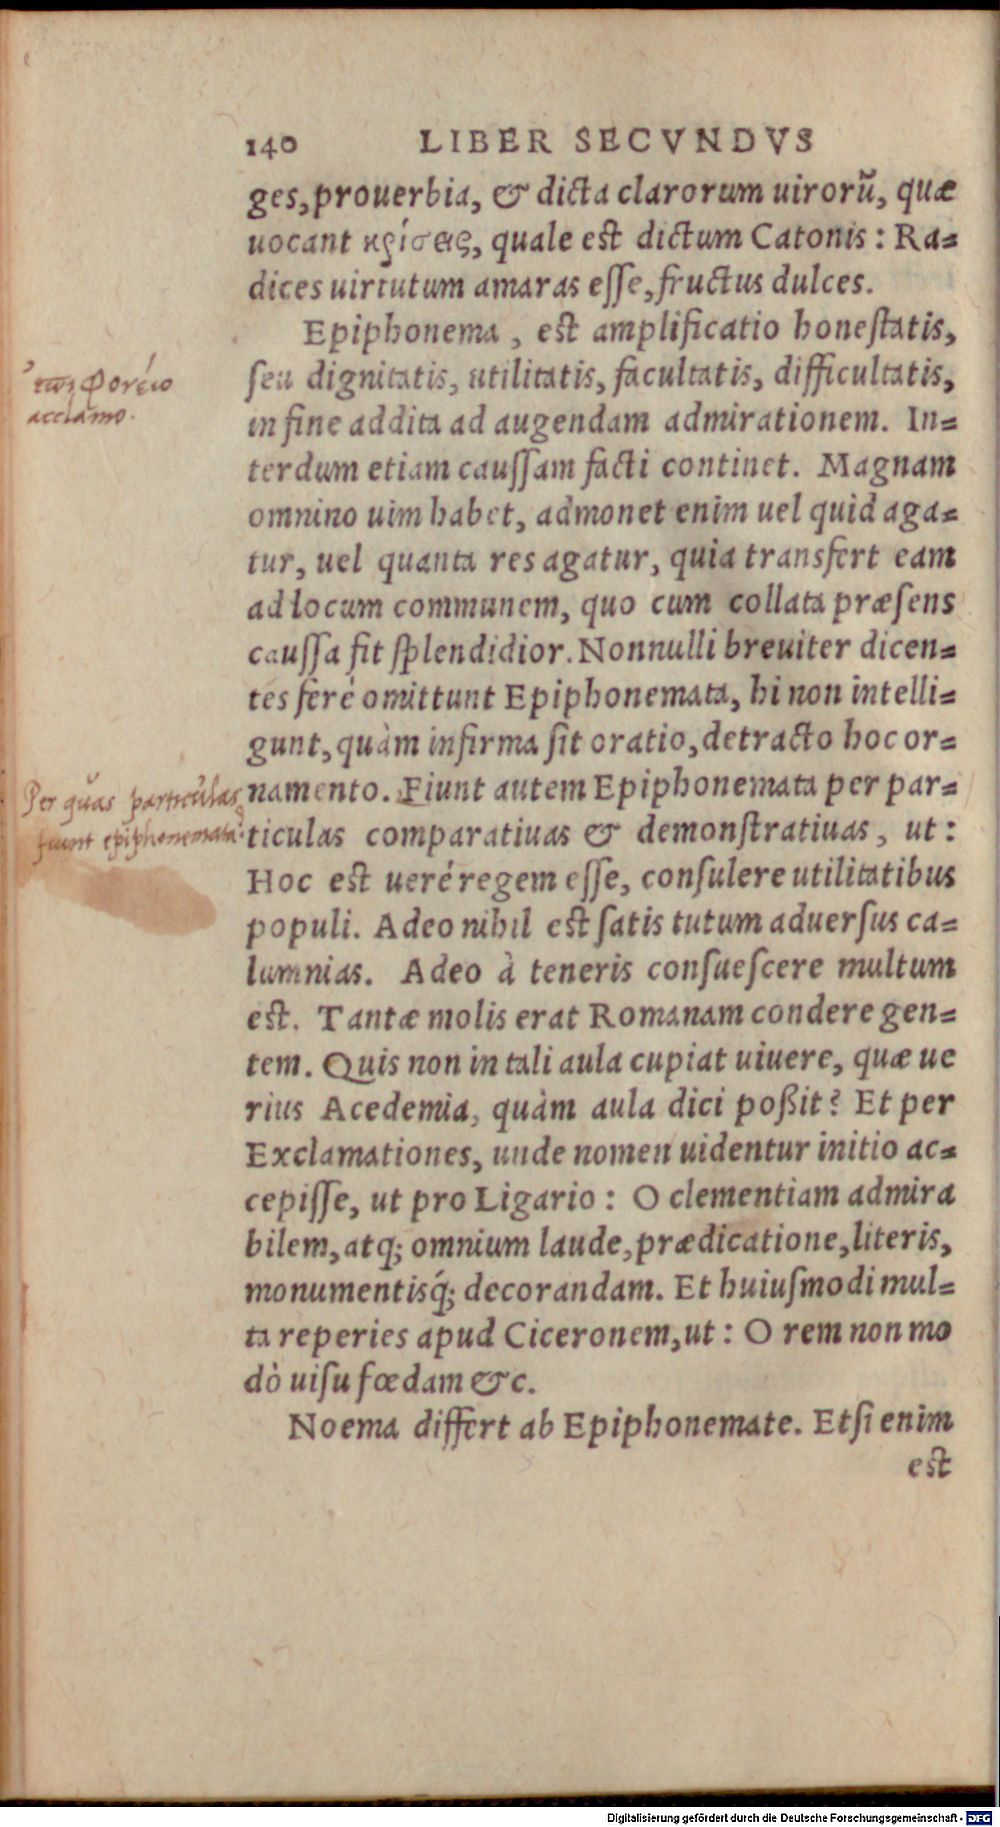 140 LIBER SECVNDVS
ges, prouerbia, & dicta clarorum uirorũ, quæ
uocant κρίσεις, quale est dictum Catonis: Ra=
dices uirtutum amaras esse, fructus dulces.
Epiphonema, est amplificatio honestatis,
seu dignitatis, utilitatis, facultatis, difficultatis,
in fine addita ad augendam admirationem. In=
terdum etiam caussam facti continet. Magnam
omnino uim habet, admonet enim uel quid aga=
tur, uel quanta res agatur, quia transfert eam
ad locum communem, quo cum collata præsens
caussa fit splendidior. Nonnulli breuiter dicen=
tes ferè omittunt Epiphonemata, hi non intelli=
gunt, quàm infirma sit oratio, detracto hoc or=
namento. Fiunt autem Epiphonemata per par=
ticulas comparatiuas & demonstratiuas, ut:
Hoc est uerè regem esse, consulere utilitatibus
populi. Adeo nihil est satis tutum aduersus ca=
lumnias. Adeo à teneris consuescere multum
est. Tantæ molis erat Romanam condere gen=
tem. Quis non in tali aula cupiat uiuere, quæ ue
rius Acedemia, quàm aula dici poßit? Et per
Exclamationes, unde nomen uidentur initio ac=
cepisse, ut pro Ligario: O clementiam admira
bilem, atq; omnium laude, prædicatione, literis,
monumentisq́; decorandam. Et huiusmodi mul=
ta reperies apud Ciceronem, ut: O rem non mo
dò uisu fœdam &c.
Noema differt ab Epiphonemate. Etsi enim
est
φονέιο
acclamo.
Per quas particulas
fiunt epiphonemata.
Digitalisierung gefördert durch die Deutsche Forschungsgemeinschaft - DFG